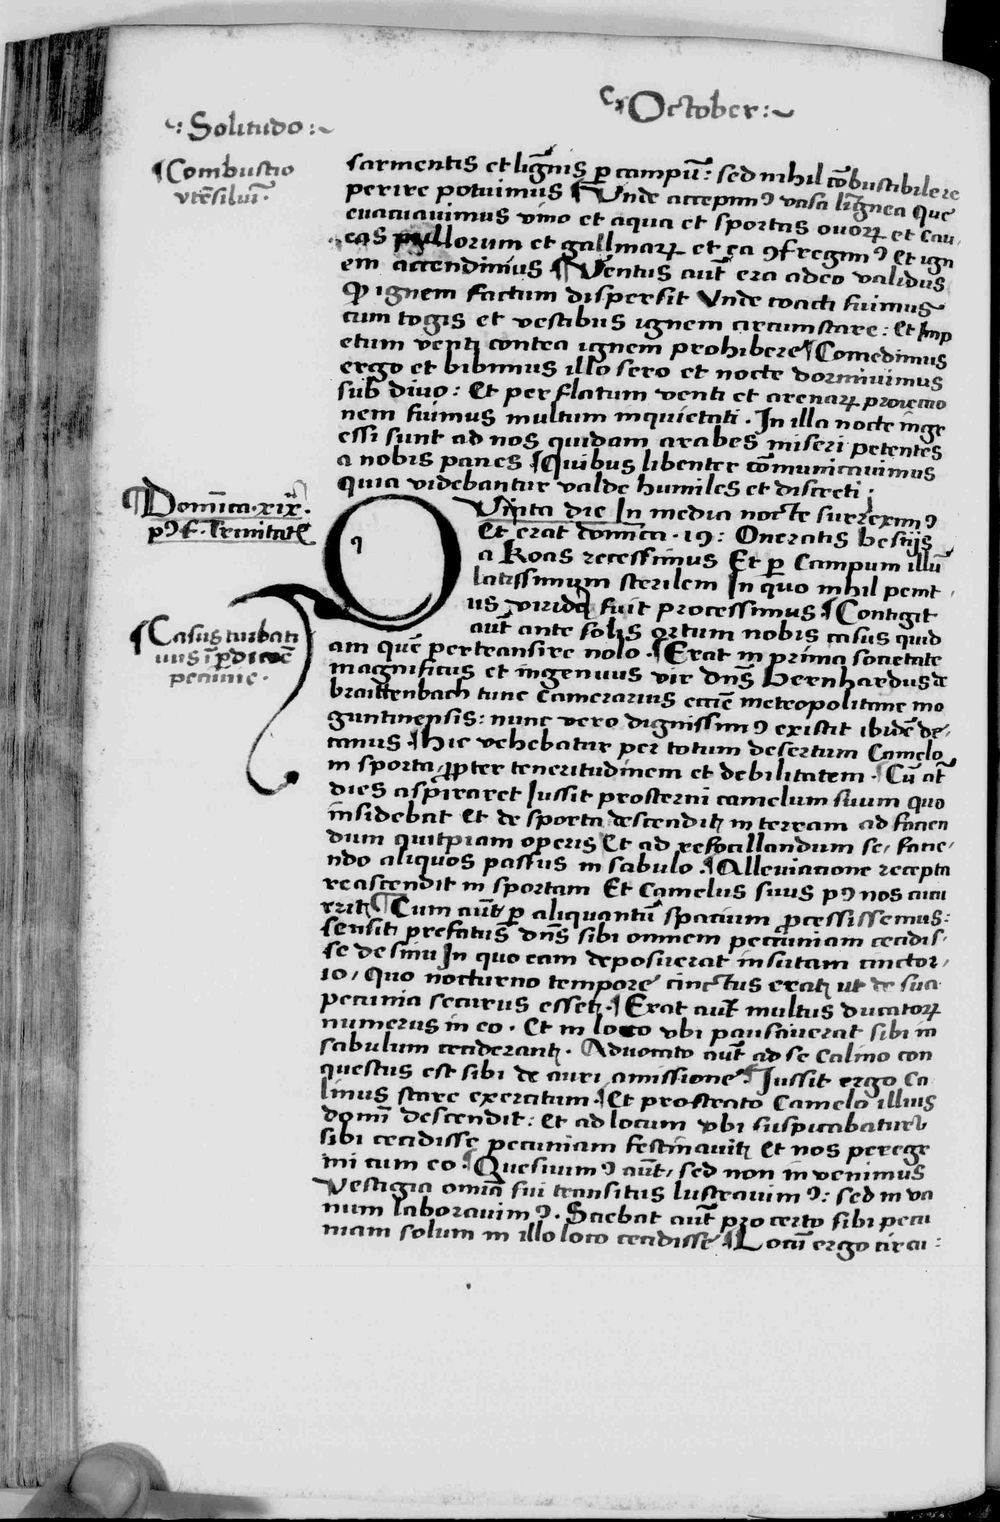 October:~
·:Solitudo:~
¶Combustio
vte̅siliu̅·
sarmentis et lig̅nis ꝑ campu̅: sed nihil co̅bustibile re
perire potuimus ¶Vnde accepimꝰ vasa li̅gnea que
euacuauimus vino et aqua et sportas ouoꝝ et cau
eas pullorum et gallinaꝝ et ea ꝯfregimꝰ et ign
em accendimus ¶Ventus aut̅ era adeo validus
ꝙ ignem factum dispersit Vnde coacti fuimus
cum togis et vestibus ignem circumstare: Et Imp
etum venti contra ignem prohibere ¶Comedimus
ergo et bibimus illo sero et nocte dormiuimus
sub diuo: Et per flatum venti et arenaꝝ proiectio
nem fuimus multum inquietati · In illa nocte ingr
essi sunt ad nos quidam arabes miseri petentes
a nobis panes ¶Quibus libenter co̅municauimus
quia videbantur valde humiles et discreti ;
¶Domi̅ca·xix·
pꝰ f· Trinitatꝭ
QVinta die In media nocte surreximꝰ
Et erat domi̅ca · 19: Oneratis bestijs
a Koas recessimus Et ꝑ Campum illu̅
latissimum sterilem In quo nihil penit
us viride fuit processimus ¶Contigit
aut̅ ante solis ortum nobis casus quid
¶Casus turbati
uus i̅ ꝑdicoe̅
pecunie·
am que̅ pertransire nolo · ¶Erat in prima societate
magnificus et ingenuus vir dn̅s Bernhardus de
braittenbach tunc Camerarius eccie̅ metropolitane mo
guntinensis: nunc vero dignissimꝰ existit ibide̅ de
canus ¶hic vehebatur per totum desertum Camelo
in sporta ꝓpter teneritudinem et debilitatem · ¶Cu̅ at̅
dies aspiraret Iussit prosterni camelum suum quo
insidebat Et de sporta descendit in terram ad facien
dum quitpiam operis Et ad refocillandum se, facie
ndo aliquos passus in sabulo · ¶Alleuiatione recepta
reascendit in sportam Et Camelus suus pꝰ nos cucu
rrit ¶Cum aut̅ ꝑ aliquantu̅ spacium ꝓcessissemus:
sensit prefatus dn̅s sibi omnem pecuniam cecidis
se de sinu In quo eam deposuerat insutam cinctor
io, Quo nocturno tempore cinctus erat ut de sua
pecunia securus esset · ¶Erat aut̅ multus ducatoꝝ
numerus in eo · Et in loco vbi pausauerat sibi in
sabulum ceciderant · Aduocato aut̅ ad se Calino con
questus est sibi de auri amissione ¶Iussit ergo Ca
linus stare exercitum ¶Et prostrato Camelo illius
domi̅ descendit: Et ad locum vbi suspicabatur
sibi cecidisse pecuniam festinauit Et nos peregr
ini cum eo · ¶Quesiuimꝰ aut̅, sed non inuenimus
Vestigia omia̅ sui transitus lustrauimꝰ: sed in va
num laborauimꝰ · Sciebat aut̅ pro certo sibi pecu
niam solum in illo loco cecidisse ¶Locu̅ ergo circu: